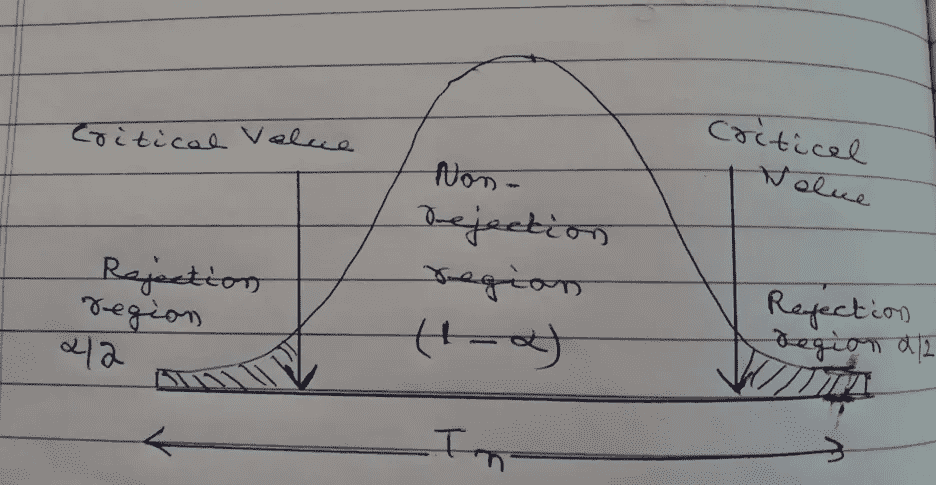 Critical Value
Critical
Value
Non-
rejection
region
(1-α)
Rejection
region
α/2
Rejection
region α/2
Tn